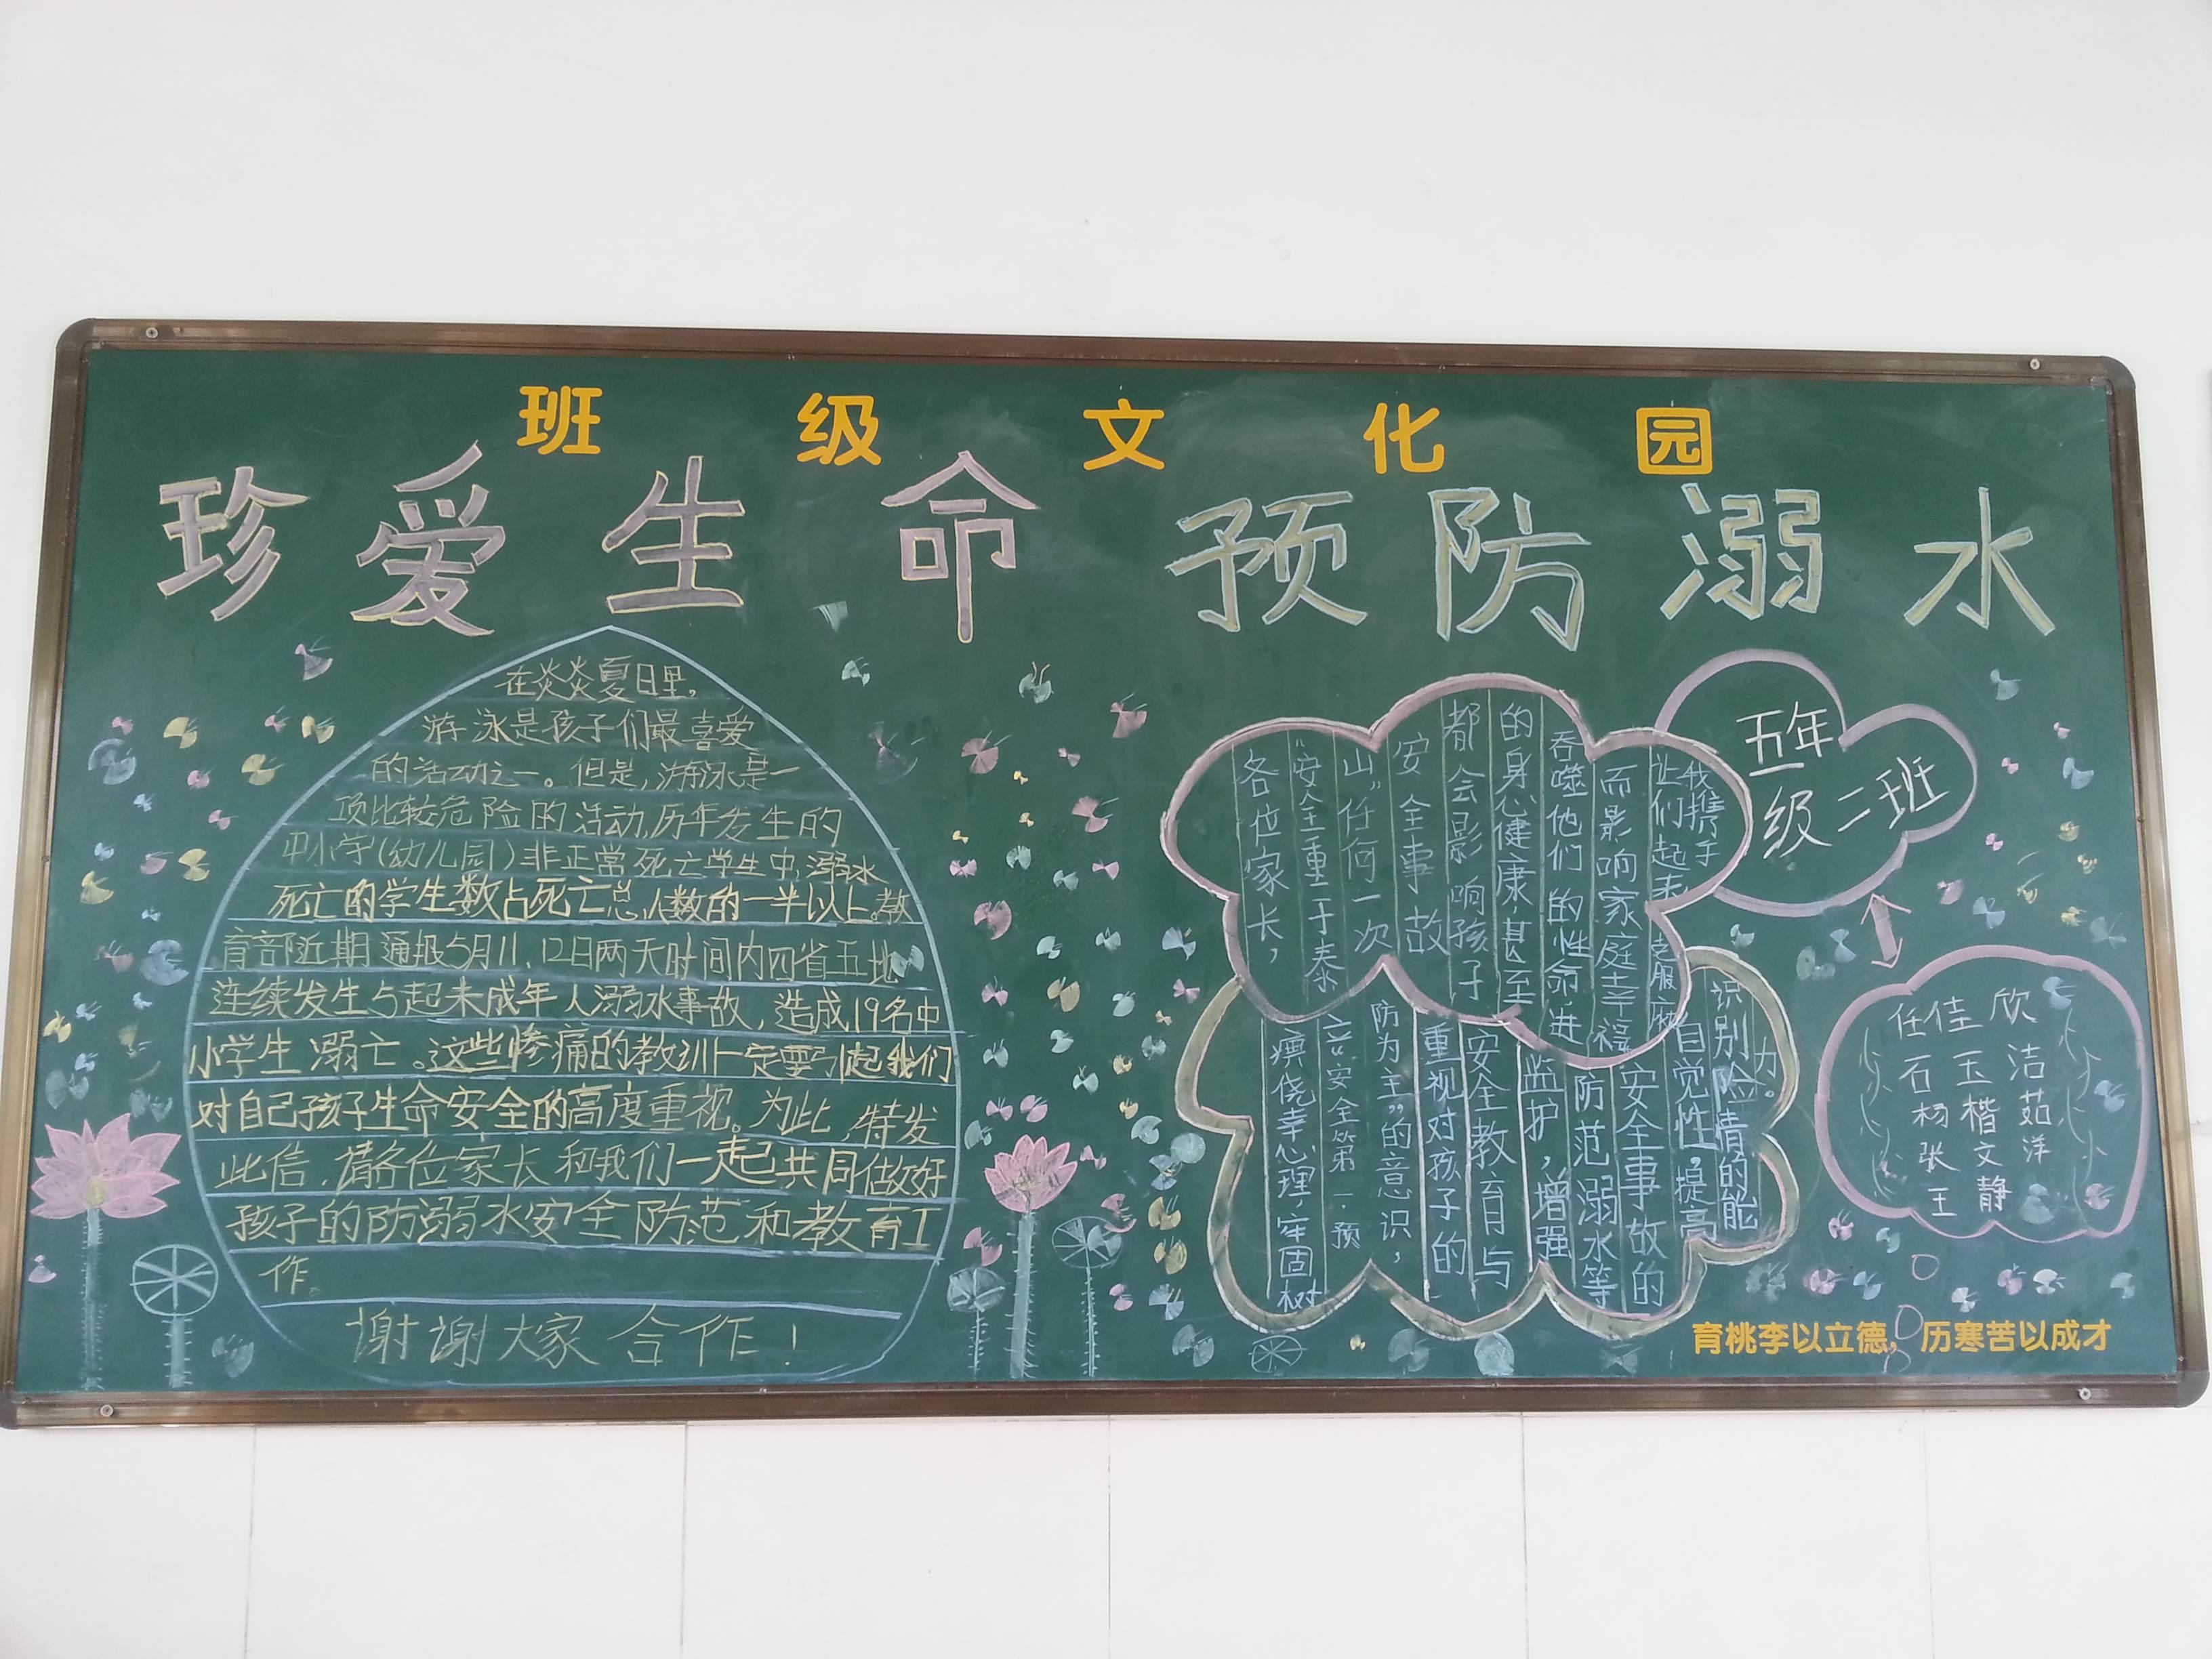 班级文化园
珍爱生命 预防溺水
在炎炎夏日里,
游泳是孩子们最喜爱
的活动之一。但是,游泳是一
项比较危险的活动,历年发生的
中小学(幼儿园)非正常死亡学生中,溺水
死亡的学生数占死亡总人数的一半以上。教
育部近期通报5月11、12日两天时间内四省五地
连续发生5起未成年人溺水事故,造成19名中
小学生溺亡。这些惨痛的教训一定要引起我们
对自己孩子生命安全的高度重视。为此,特发
此信,请各位家长和我们一起共同做好
孩子的防溺水安全防范和教育工
作。
谢谢大家合作!
各位家长,
“安全重于泰
山”任何一次
安全事故
都会影响孩子
的身心健康,甚至
吞噬他们的性命,进
而影响家庭幸福
让我们携手起来,克服麻
痹侥幸心理,牢固树
立“安全第一,预
防为主”的意识,
重视对孩子的
安全教育与
监护,增强
防范溺水等
安全事故的
自觉性,提高
识别险情的能
力。
五年
级二班
任佳欣
石玉洁
杨楷茹
张文洋
王静
育桃李以立德,历寒苦以成才